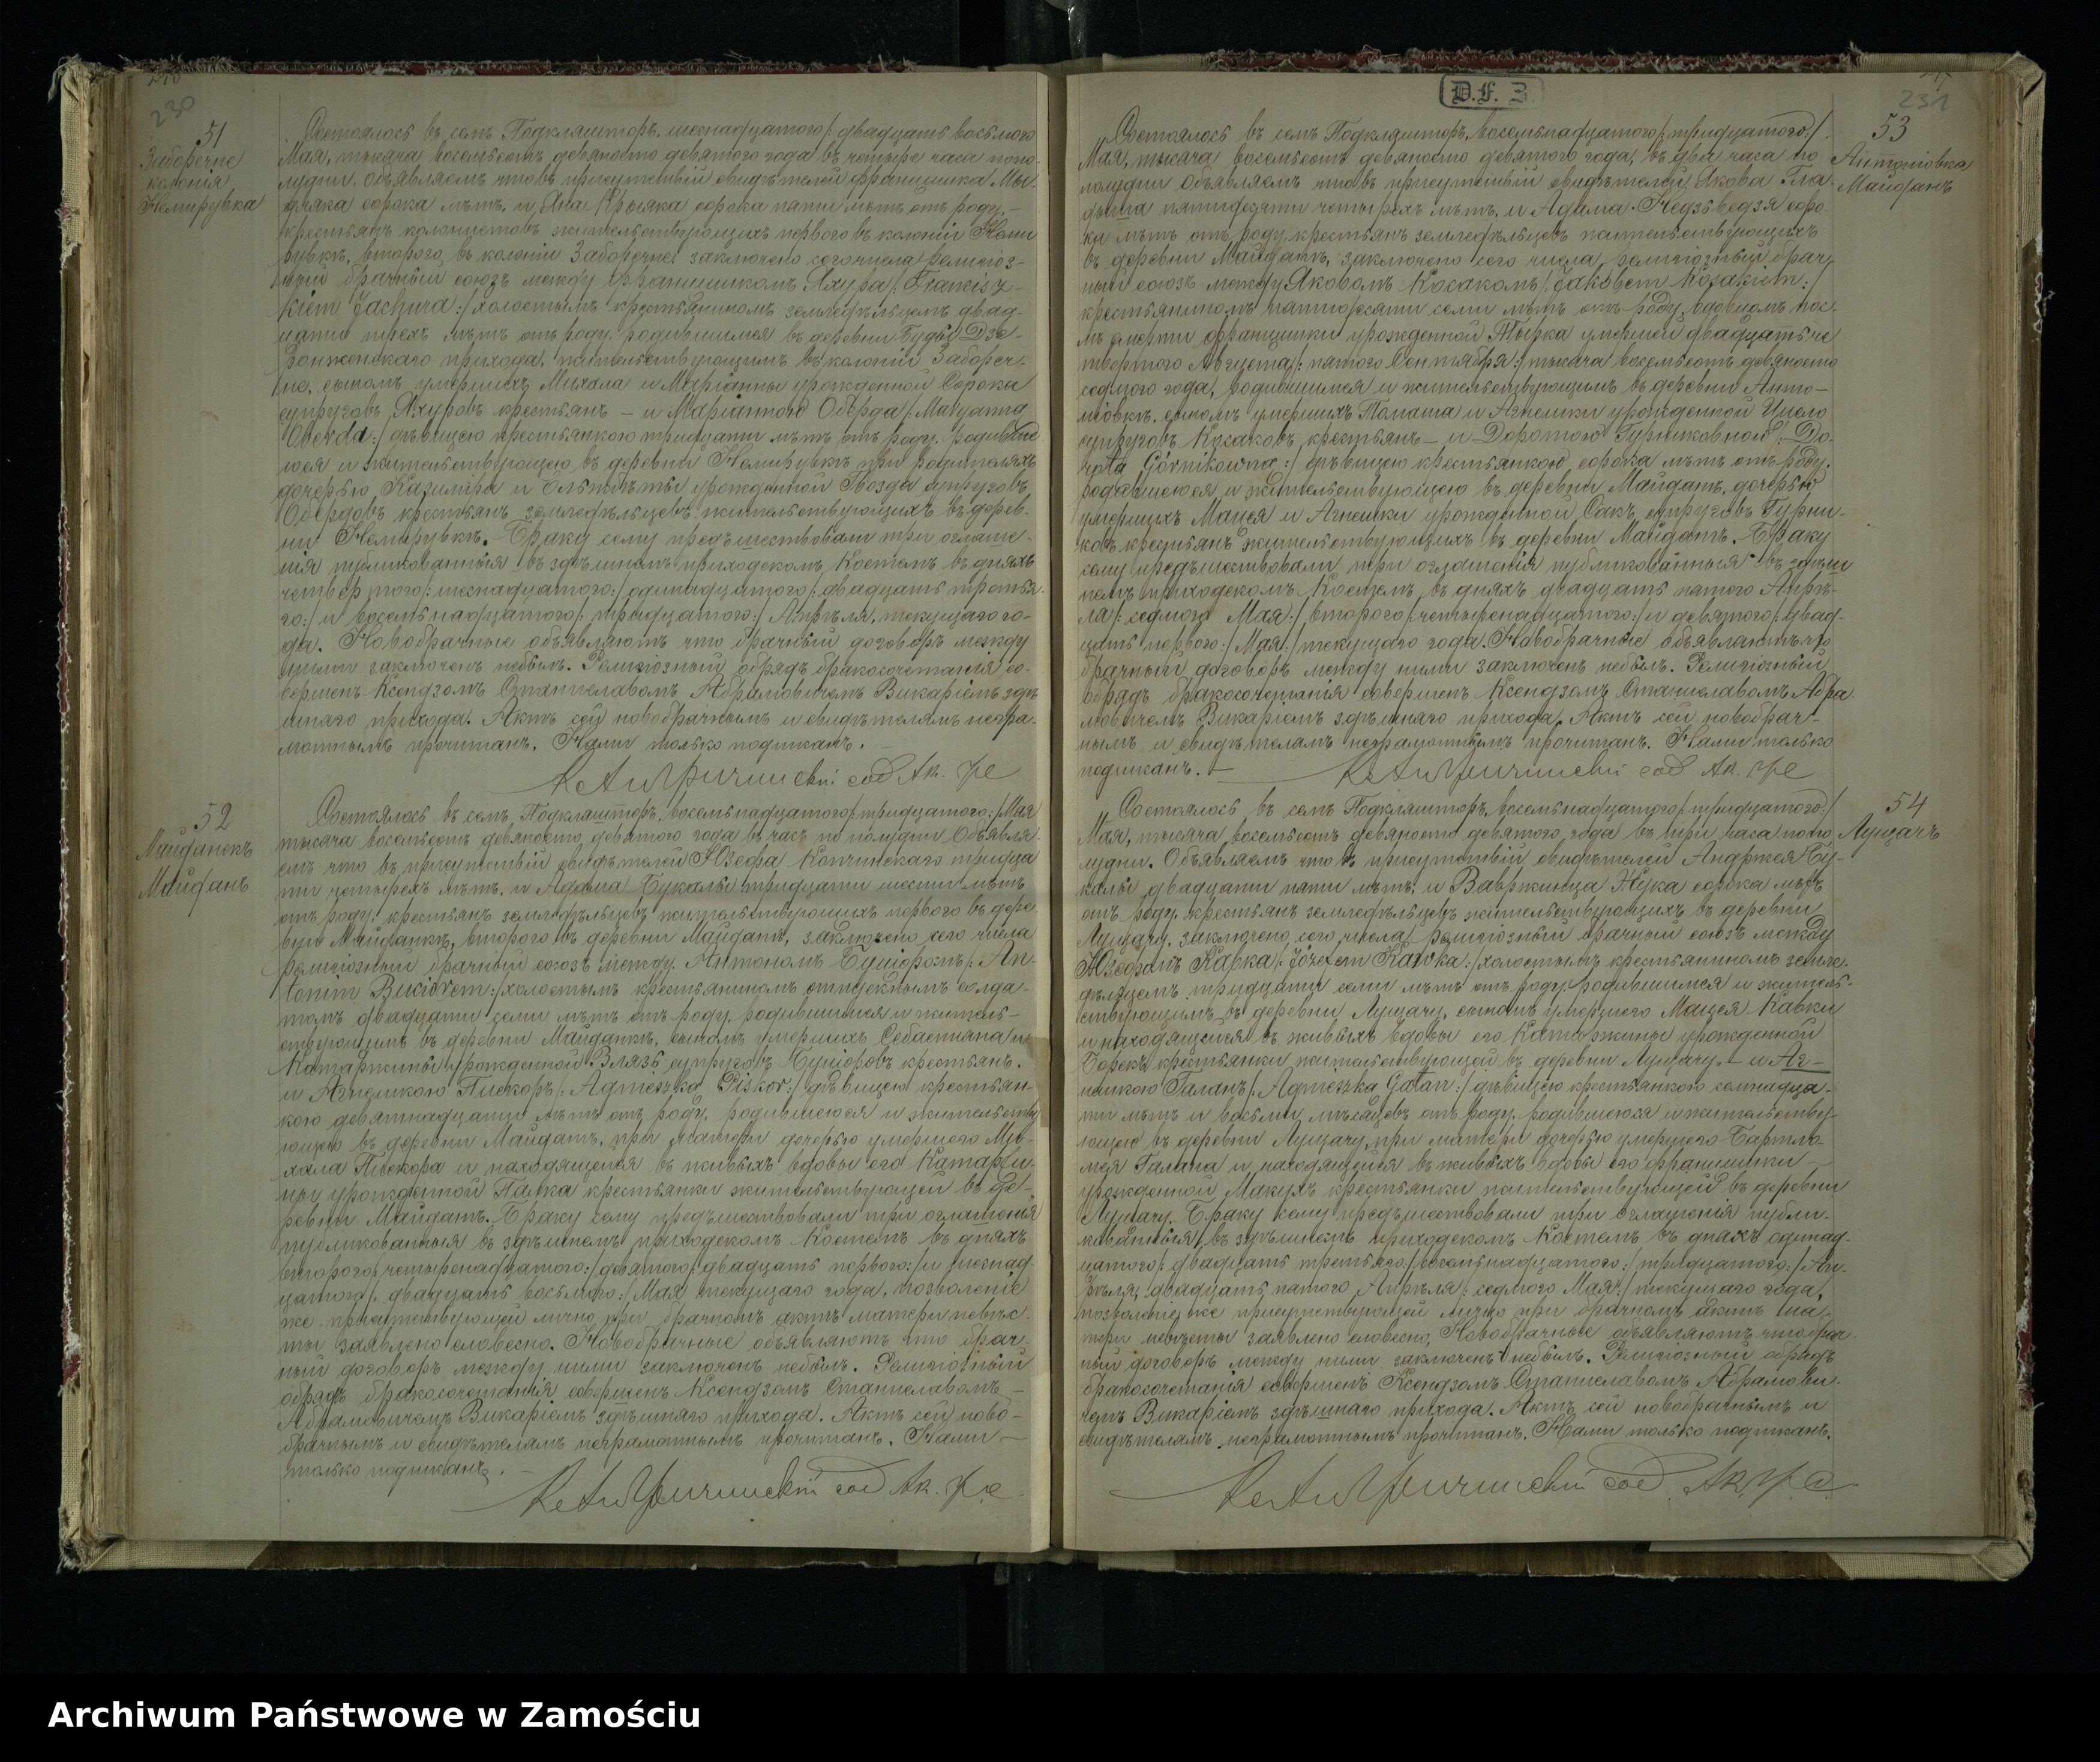 230
51
Заборечне
колонія
Немирувка
Состоялось въ селѣ Подкляшторѣ, шестнадцатого /: двадцать восьмого
Мая, тысяча восемьсотъ девяносто девятого года въ четыре часа попо-
лудни. Объявляемъ что въ присутствіи свидѣтелей Францишка
сорока лѣтъ, и Яна Крысяка сорока пяти лѣтъ отъ роду,
крестьянъ колонистовъ жительствующихъ первого въ колоніи Неми
рувкѣ, второго въ колоніи Заборечне заключено сего числа религіоз-
ный брачный союзъ между Францишкомъ Яхура /: Francisz-
kiem Jachura :/ холостымъ крестьяниномъ земледѣльцемъ двад-
цати трехъ лѣтъ отъ роду, родившимся въ деревни Буды Дзе-
ронженского прихода, жительствующимъ въ колоніи Забореч-
но, сыномъ умершихъ Михала и Маріанны урожденной Сорока
супруговъ Яхуровъ крестьянъ – и Маріанною Оберда /: Maryanna
Oberda :/ дѣвицею крестьянкою тридцати лѣтъ отъ роду, родивше
юся и жительствующею въ деревни Немирувкѣ при родителяхъ
дочерью Казимира и Эльжбеты урожденной Гвозда супруговъ
Обердовъ крестьянъ земледѣльцевъ жительствующихъ въ дерев-
ни Немирувкѣ. Браку сему предъшествовали три оглаше-
нія публикованныя въ здѣшнемъ приходскомъ Костелѣ въ дняхъ
четвертого /: шестнадцатого :/ одинадцатого /: двадцать третья-
го :/ и восемьнадцатого /: тридцатого :/ Апрѣля, текущаго го-
да. Новобрачные объявляютъ что брачный договоръ между
ними заключенъ небылъ. Религіозный обрядъ бракосочетанія со-
вершенъ Ксендзомъ Станиславомъ Абрамовичемъ Викаріемъ здѣ
шняго прихода. Актъ сей новобрачнымъ и свидѣтелямъ негра-
мотнымъ прочитанъ. Нами только подписанъ.
52
Майданекъ
Майданъ
Состоялось въ селѣ Подкляшторѣ, восемьнадцатого /: тридцатого :/ Мая
тысяча восемьсотъ девяносто девятого года въ часъ по полудни. Объявля
емъ что въ присутствіи свидѣтелей Юзефа Копчинскаго тридца
ти четырехъ лѣтъ, и Адама Букалы тридцати шести лѣтъ
отъ роду, крестьянъ земледѣльцевъ жительствующихъ первого въ дере
вни Майданкѣ, второго въ деревни Майданѣ, заключено сего числа
религіозный брачный союзъ между Антономъ Буціоромъ /: An-
tonim Buciorem :/ холостымъ крестьяниномъ отпускнымъ солда-
томъ двадцати семи лѣтъ отъ роду, родившимся и житель-
ствующимъ въ деревни Майданкѣ, сыномъ умершихъ Себастіана и
Катаржины урожденной Влязь супруговъ Буціоровъ крестьянъ.
и Агнешкою Пискоръ /: Agnieszka Piskor :/ дѣвицею крестьян-
кою девятнадцати лѣтъ отъ роду, родившеюся и жительству
ющею въ деревни Майданѣ, при матери дочерью умершого Ми-
хала Пискора и находящейся въ живыхъ вдовы его Катаржи-
ны урожденной Палка крестьянки жительствующей въ де-
ревни Майданѣ. Браку сему предъшествовали три оглашенія
публикованныя въ здѣшнемъ приходскомъ Костелѣ въ дняхъ
второго /: четырнадцатого :/ девятого /: двадцать первого :/ и шестнад-
цатого /: двадцать восьмого :/ Мая текущаго года. Позволеніе
же присутствующей лично при брачномъ актѣ матери невѣс-
ты заявлено словесно. Новобрачные объявляютъ что брач-
ный договоръ между ними заключенъ небылъ. Религіозный
обрядъ бракосочетанія совершенъ Ксендзомъ Станиславомъ
Абрамовичемъ Викаріемъ здѣшняго прихода. Актъ сей ново-
брачнымъ и свидѣтелямъ неграмотнымъ прочитанъ. Нами
только подписанъ.
D. F. 3.
231
53
Антоніовка
Майданъ
Состоялось въ селѣ Подкляшторѣ, восемьнадцатого /: тридцатого :/
Мая, тысяча восемьсотъ девяносто девятого года, въ два часа по
полудни. Объявляемъ что въ присутствіи свидѣтелей Якова Гла-
дыша пятидесяти четырехъ лѣтъ, и Адама Недзьведзя соро-
ка лѣтъ отъ роду крестьянъ земледѣльцевъ жительствующихъ
въ деревни Майданѣ, заключено сего числа религіозный брач-
ный союзъ между Яковомъ Косакомъ /: Jakóbem Kosakiem :/
крестьяниномъ пятидесяти семи лѣтъ отъ роду, вдовцомъ пос-
лѣ смерти Францишки урожденной Тырка умершей двадцать че
твертого Августа /: пятого Сентября :/ тысяча восемьсотъ девяносто
седмого года, родившимся и жительствующимъ въ деревни Анто-
ніовкѣ, сыномъ умершихъ Томаша и Агнешки урожденной
супруговъ Косаковъ крестьянъ – и Доротою Гурниковною /: Do-
rota Górnikowna :/ дѣвицею крестьянкою сорока лѣтъ отъ роду,
родившеюся и жительствующею въ деревни Майданѣ, дочерью
умершихъ Мацея и Агнешки урожденной Сакъ супруговъ Гурни-
ковъ крестьянъ жительствующихъ въ деревни Майданѣ. Браку
сему предъшествовали три оглашенія публикованныя въ здѣш
немъ приходскомъ Костелѣ, въ дняхъ двадцать пятого Апрѣ-
ля /: седмого Мая :/ второго /: четырнадцатого :/ и девятого /: двад-
цать первого :/ Мая :/ текущаго года. Новобрачные объявляютъ что
брачный договоръ между ними заключенъ небылъ. Религіозный
обрядъ бракосочетанія совершенъ Ксендзомъ Станиславомъ Абра
мовичемъ Викаріемъ здѣшняго прихода. Актъ сей новобрач-
нымъ и свидѣтелямъ неграмотнымъ прочитанъ. Нами только
подписанъ.
54
Лущачъ
Состоялось въ селѣ Подкляшторѣ, восемьнадцатого /: тридцатого :/
Мая, тысяча восемьсотъ девяносто девятого года въ три часа попо
лудни. Объявляемъ что въ присутствіи свидѣтелей Анджея
двадцати пяти лѣтъ, и Вавржинца Жука сорока лѣтъ
отъ роду крестьянъ земледѣльцевъ жительствующихъ въ деревни
Лущачу, заключено сего числа религіозный брачный союзъ между
Юзефомъ Кавка /: Józefem Kawka :/ холостымъ крестьяниномъ земле-
дѣльцемъ тридцати семи лѣтъ отъ роду, родившимся и житель-
ствующимъ въ деревни Лущачу, сыномъ умершого Мацея Кавки
и находящейся въ живыхъ вдовы его Катаржины урожденной
Борекъ крестьянки жительствующей въ деревни Лущачу. – и Аг-
нешкою Галанъ /: Agnieszka Gałan :/ дѣвицею крестьянкою семнадца-
ти лѣтъ и восьми мѣсяцевъ отъ роду, родившеюся и жительству-
ющею въ деревни Лущачу при матери дочерью умершого Бартло-
мея Галана и находящейся въ живыхъ вдовы его Францишки
урожденной Макухъ крестьянки жительствующей въ деревни
Лущачу. Браку сему предъшествовали три оглашенія публи-
кованныя въ здѣшнемъ приходскомъ Костелѣ въ дняхъ одинад-
цатого /: двадцать третьяго :/ восемьнадцатого :/ тридцатого :/ Ап-
рѣля, двадцать пятого Апрѣля /: седмого Мая :/ текущаго года,
позволеніе же присутствующей лично при брачномъ актѣ ма-
тери невѣсты заявлено словесно, Новобрачные объявляютъ что брач-
ный договоръ между ними заключенъ небылъ. Религіозный обрядъ
бракосочетанія совершенъ Ксендзомъ Станиславомъ Абрамови-
чемъ Викаріемъ здѣшняго прихода. Актъ сей новобрачнымъ и
свидѣтелямъ неграмотнымъ прочитанъ. Нами только подписанъ.
Archiwum Państwowe w Zamościu